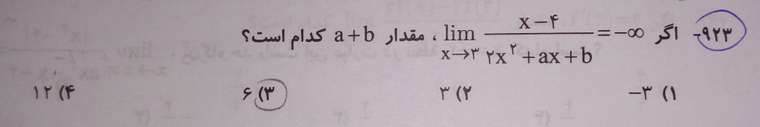 ۹۲۳- اگر lim x→۳ (x−۴)/(۲x^۲+ax+b) = −∞ ، مقدار a+b کدام است؟
۱) ۳− ۲) ۳ ۳) ۶ ۴) ۱۲